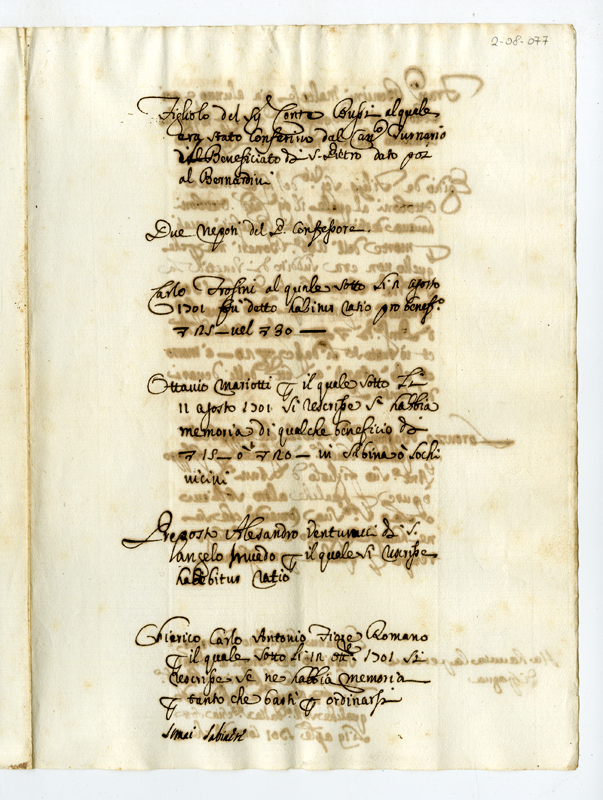 2-08-077
Figliolo del Sig.r Conte Bussi al quale
era stato conferito dal Can.co
il Beneficiato di S. Pietro dato poi
al Bernardini
Due neponi del P. Confessore.
Carlo Frosini al quale sotto li 12 agosto
1701 fù detto habitur ratio pro benef.o
25 — vel 30 —
Ottavio Mariotti il quale sotto li
11 agosto 1701 si rescrisse se habbia
memoria di qualche beneficio di
15 — ò 20 — in Sabina ò lochi
vicini
Preposto Alesandro Venturucci di S.
Angelo il quale si rescrisse
habebitur ratio
Chierico Carlo Antonio Fiore Romano
il quale sotto li 12 ott.e 1701 si
rescrisse se ne habbia memoria
tanto che basti ordinarsi